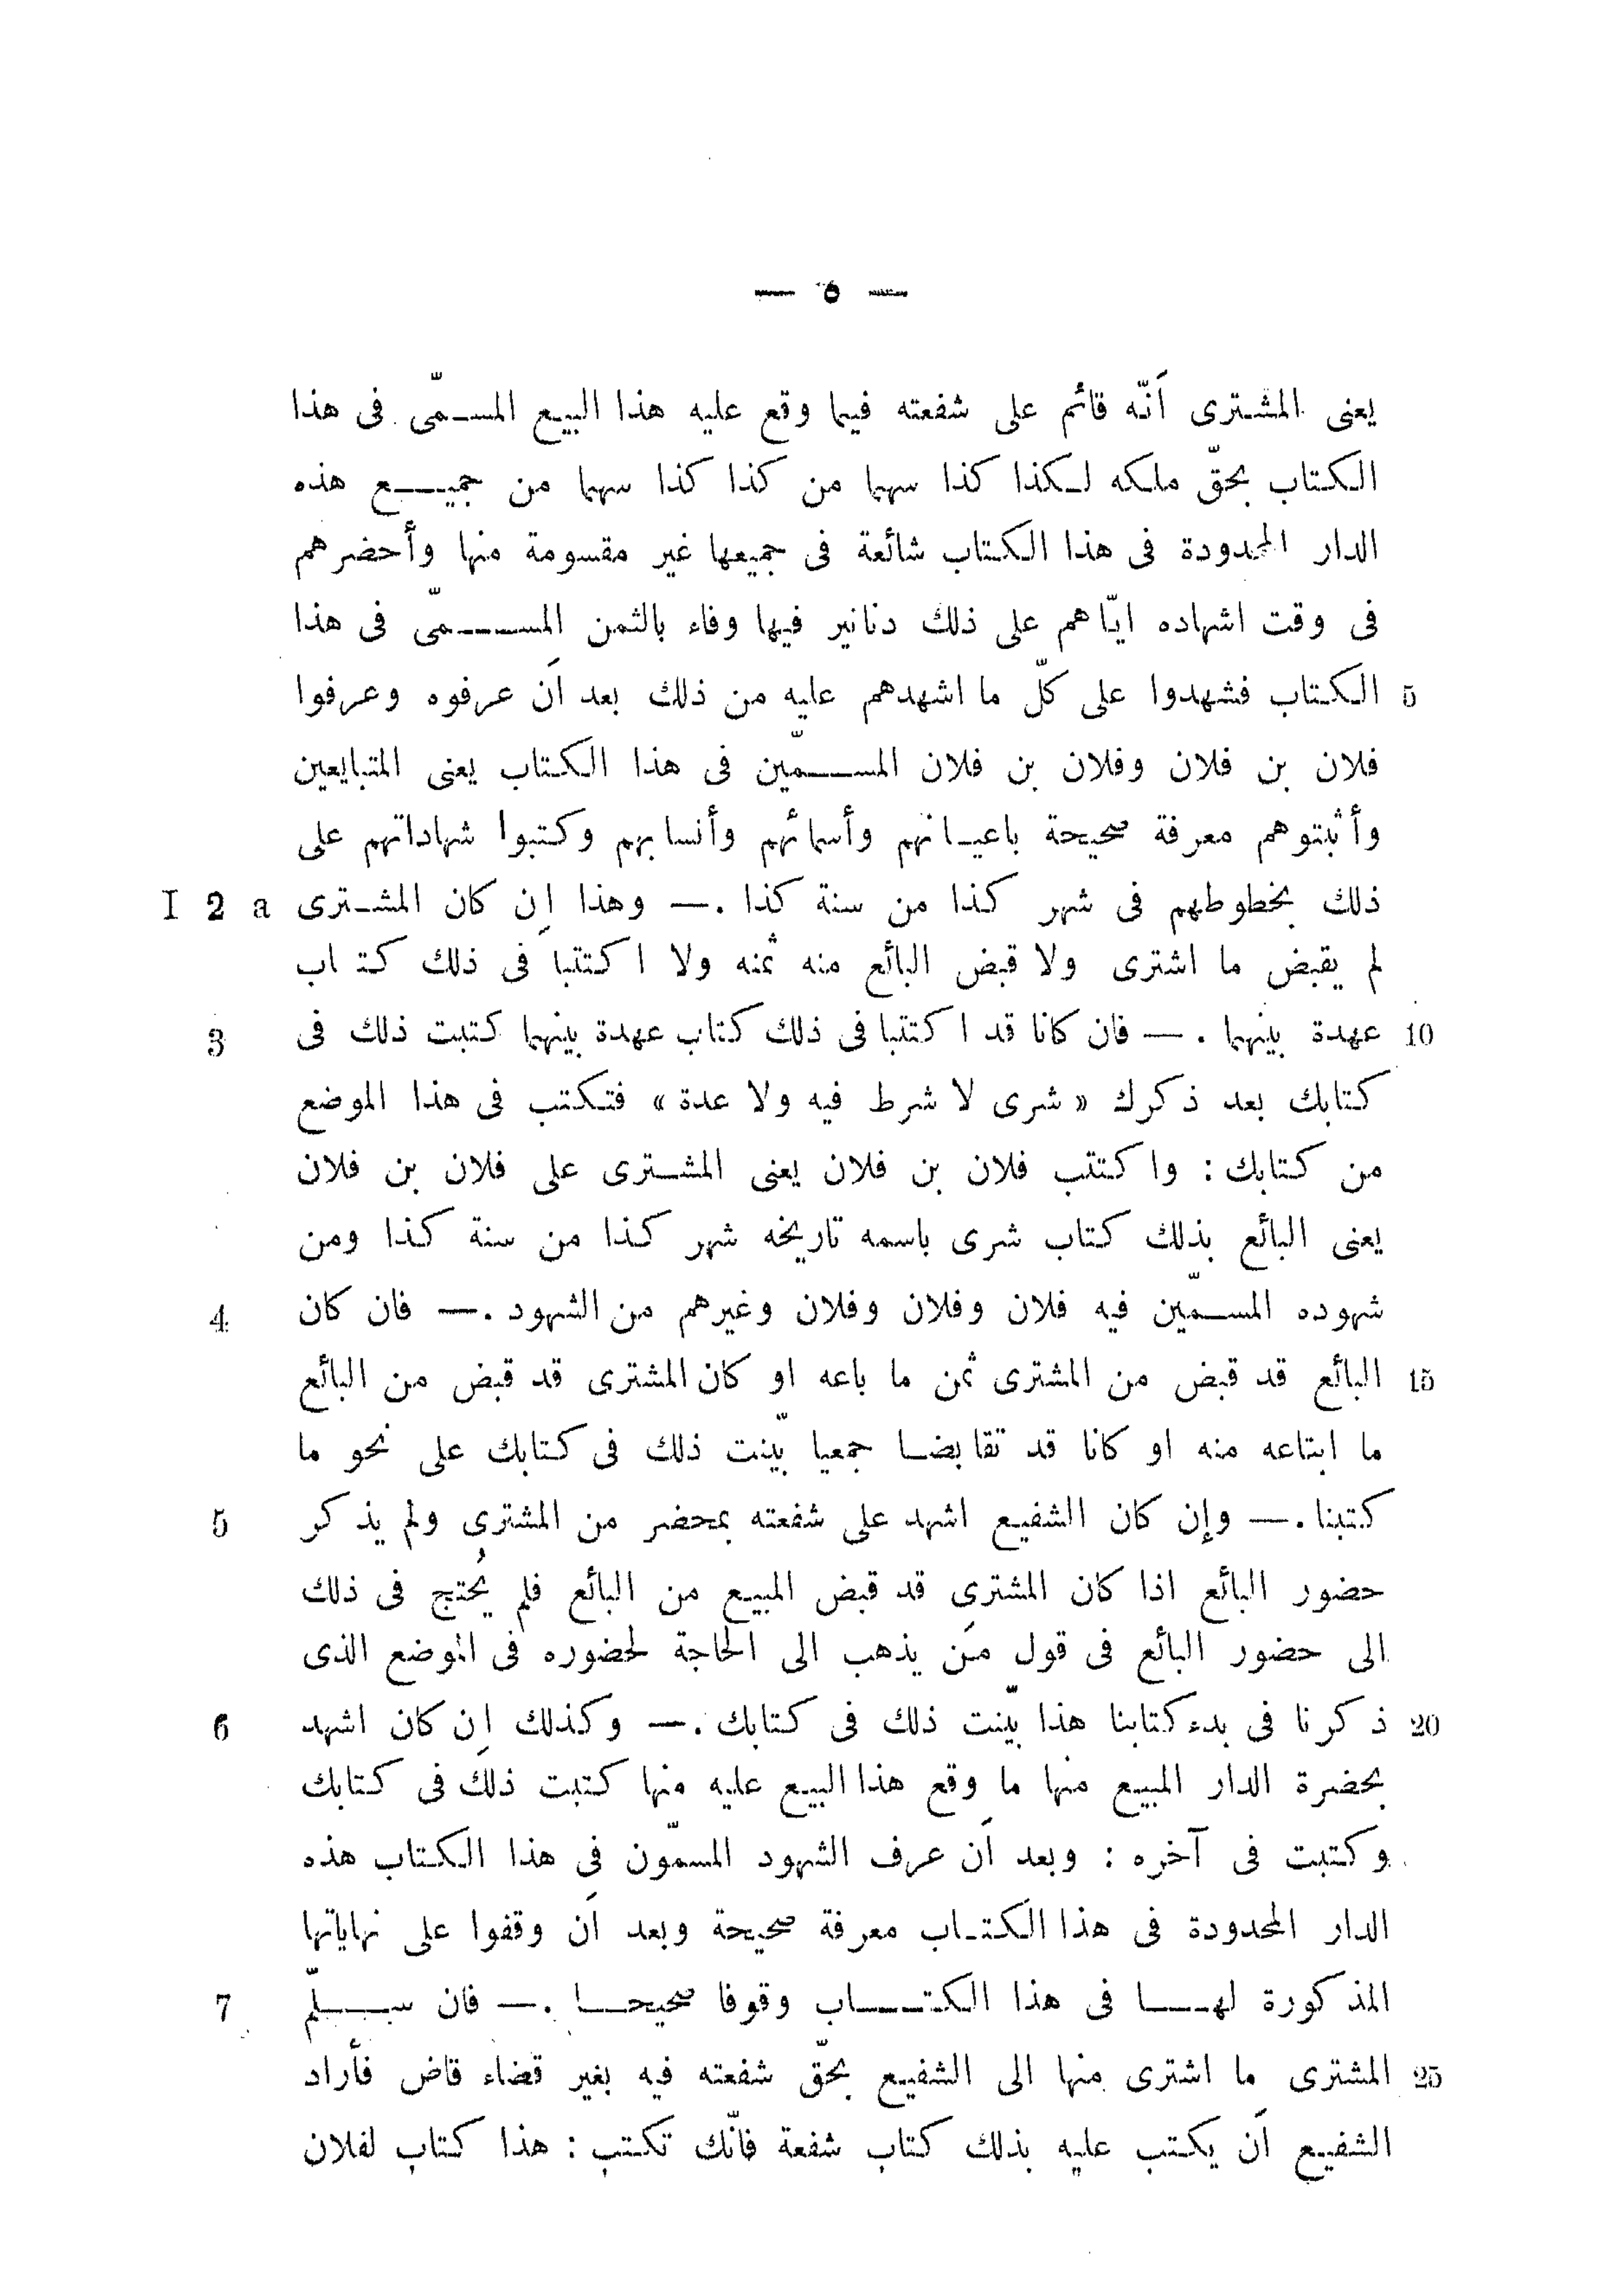 — ٥ —
يعنى المشترى أنّه قائم على شفعته فيما وقع عليه هذا البيع المسمّى فى هذا
الكتاب بحقّ ملكه لكذا كذا سهما من كذا كذا سهما من جميع هذه
الدار المحدودة فى هذا الكتاب شائعة فى جميعها غير مقسومة منها وأحضرهم
فى وقت اشهاده ايّاهم على ذلك دنانير فيها وفاء بالثمن المسمّى فى هذا
5 الكتاب فشهدوا على كلّ ما اشهدهم عليه من ذلك بعد أن عرفوه وعرفوا
فلان بن فلان وفلان بن فلان المسمّين فى هذا الكتاب يعنى المتبايعين
وأثبتوهم معرفة صحيحة باعيانهم وأسمائهم وأنسابهم وكتبوا شهاداتهم على
ذلك بخطوطهم فى شهر كذا من سنة كذا .— وهذا إن كان المشترى I 2 a
لم يقبض ما اشترى ولا قبض البائع منه ثمنه ولا اكتتبا فى ذلك كتاب
10 عهدة بينهما .— فان كانا قد اكتتبا فى ذلك كتاب عهدة بينهما كتبت ذلك فى 3
كتابك بعد ذكرك « شرى لا شرط فيه ولا عدة » فتكتب فى هذا الموضع
من كتابك : واكتتب فلان بن فلان يعنى المشترى على فلان بن فلان
يعنى البائع بذلك كتاب شرى باسمه تاريخه شهر كذا من سنة كذا ومن
شهوده المسمّين فيه فلان وفلان وفلان وغيرهم من الشهود .— فان كان 4
15 البائع قد قبض من المشترى ثمن ما باعه او كان المشترى قد قبض من البائع
ما ابتاعه منه او كانا قد تقابضا جمعيا بيّنت ذلك فى كتابك على نحو ما
كتبنا .— وإن كان الشفيع اشهد على شفعته بمحضر من المشترى ولم يذكر 5
حضور البائع اذا كان المشترى قد قبض المبيع من البائع فلم يُحتج فى ذلك
الى حضور البائع فى قول مَن يذهب الى الحاجة لحضوره فى الموضع الذى
20 ذكرنا فى بدء كتابنا هذا بيّنت ذلك فى كتابك .— وكذلك إن كان اشهد 6
بحضرة الدار المبيع منها ما وقع هذا البيع عليه منها كتبت ذلك فى كتابك
وكتبت فى آخره : وبعد أن عرف الشهود المسمّون فى هذا الكتاب هذه
الدار المحدودة فى هذا الكتاب معرفة صحيحة وبعد أن وقفوا على نهاياتها
المذكورة لها فى هذا الكتاب وقوفا صحيحا .— فان سلّم 7
25 المشترى ما اشترى منها الى الشفيع بحقّ شفعته فيه بغير قضاء قاض فأراد
الشفيع أن يكتب عليه بذلك كتاب شفعة فانّك تكتب : هذا كتاب لفلان